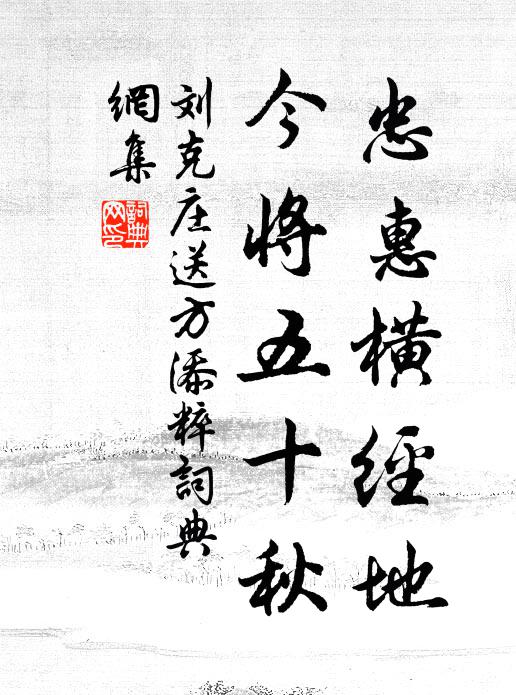 忠惠橫經地
今將五十秋
刘克庄送方添粹詞典
網集
詞典
网印